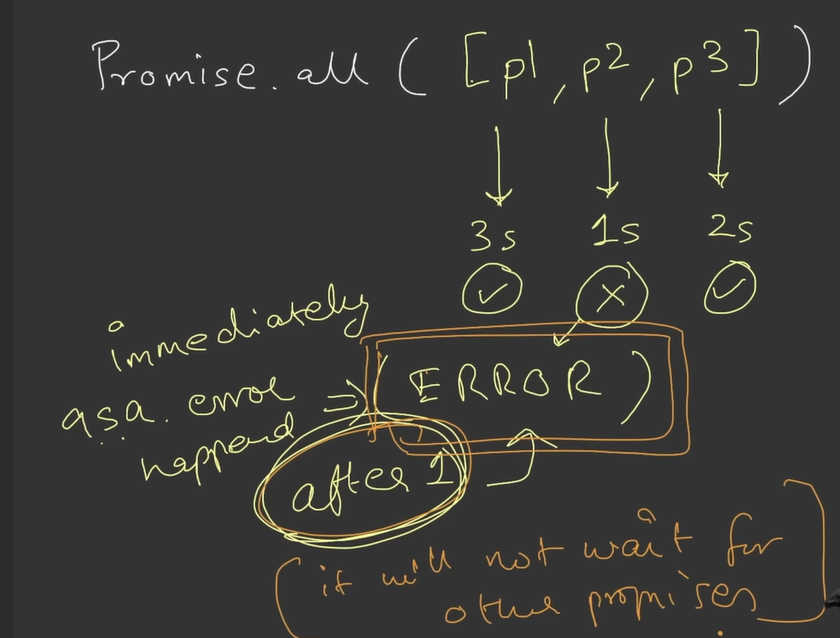 Promise.all ( [p1, p2, p3] )
3s 1s 2s
immediately
a.s.a. error
happened
=> ( ERROR )
after 1
(it will not wait for
other promises